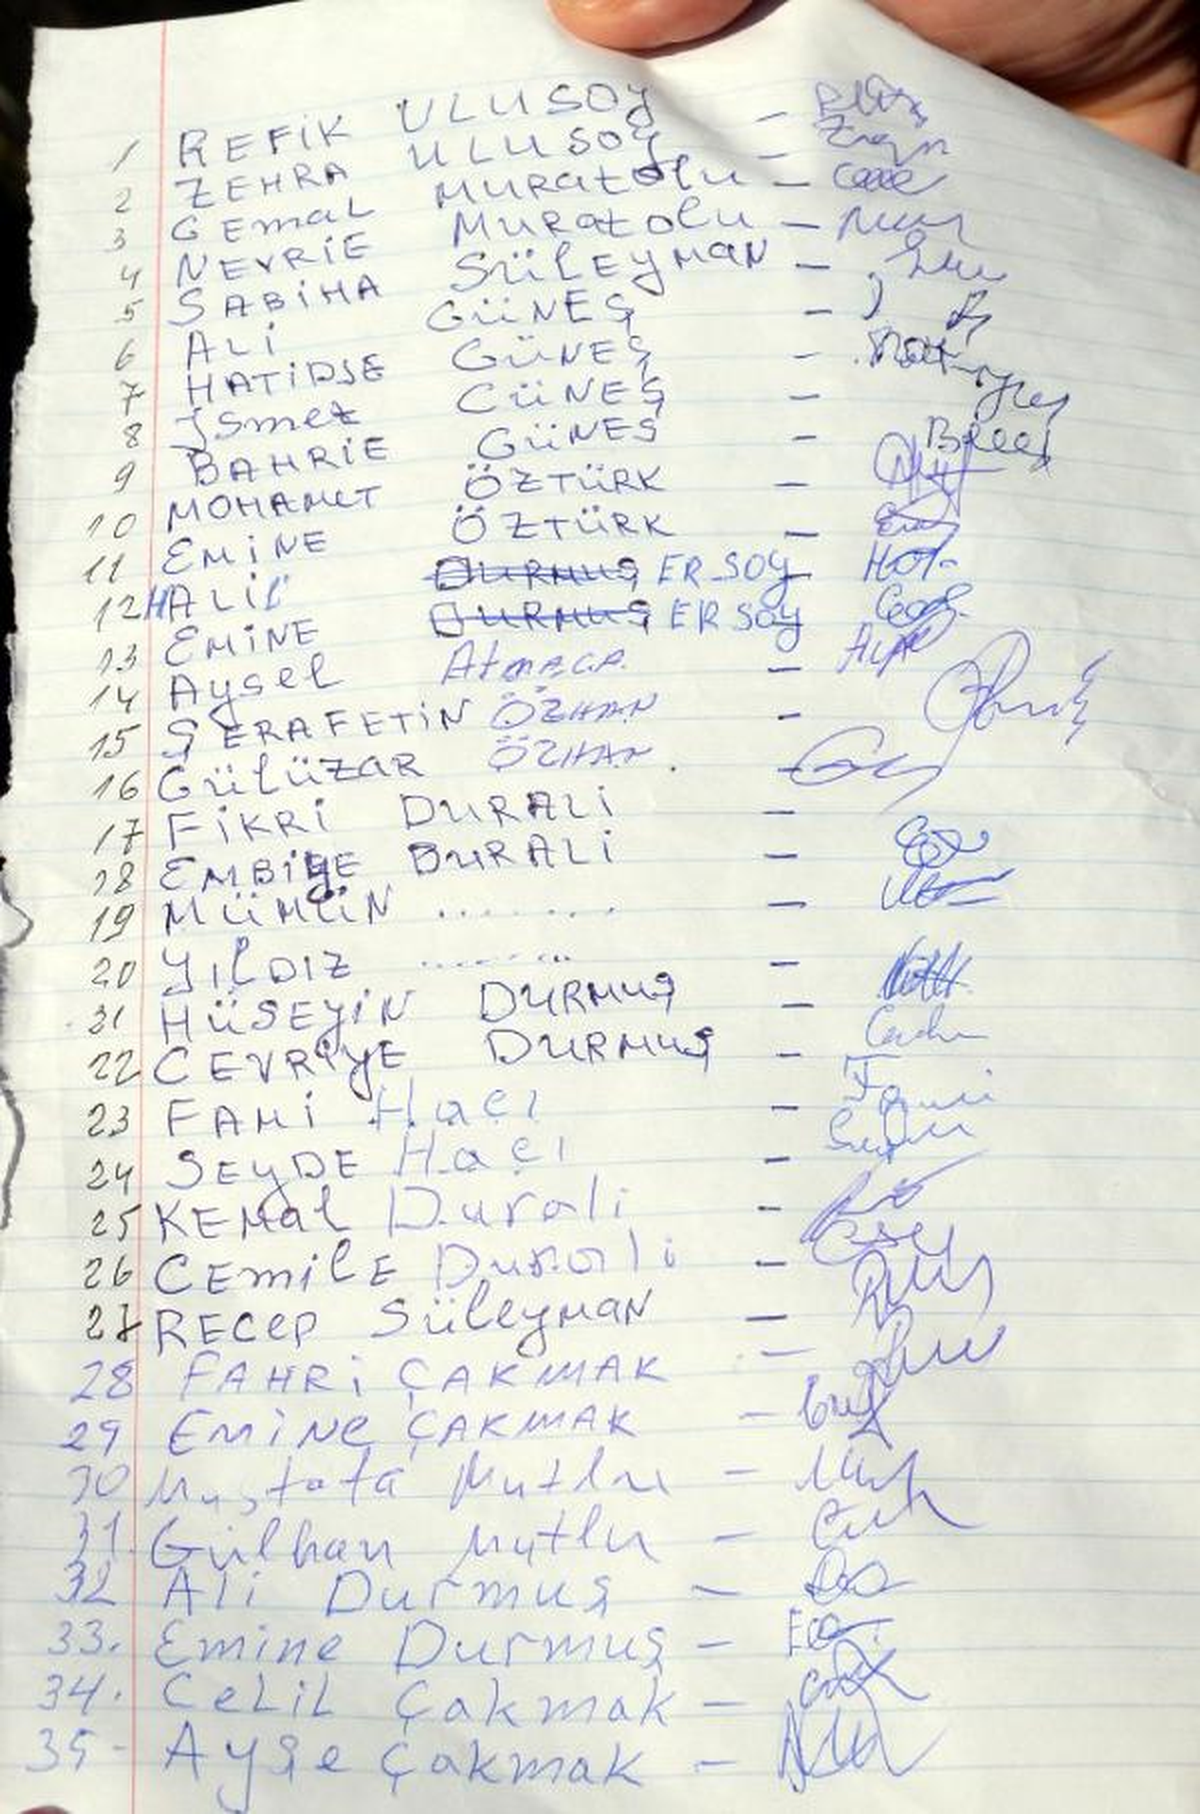 1 REFİK ULUSOY –
2 ZEHRA ULUSOY –
3 GEmaL MURatolu –
4 NEVRİE MURatolu –
5 SABİHA SÜLEYMAN –
6 ALİ GÜNEŞ –
7 HATİDSE GÜNEŞ –
8 İsmet GÜNEŞ –
9 BAHRİE GÜNEŞ –
10 MOHAMET ÖZTÜRK –
11 EMİNE ÖZTÜRK –
12 HALİL DURMUŞ ERSOY –
13 EMİNE DURMUŞ ERSOY
14 Aysel AtmACA –
15 ŞERAFETİN ÖZHAN –
16 Gülüzar ÖZHAN –
17 FİKRİ DURALİ –
18 EMBİYE DURALİ –
19 MÜMÜN ........ –
20 YILDIZ ........ –
21 HÜSEYİN DURMUŞ –
22 CEVRİYE DURMUŞ –
23 FAMİ Hacı –
24 SEYDE Hacı –
25 KEMal Durali –
26 CemilE Durali –
27 RECep Süleyman –
28 FAHRİ ÇAKMAK –
29 EMİNe ÇAKMAK –
30 Mustafa Mutlu –
31. Gülhan Mutlu –
32 Ali Durmuş –
33. Emine Durmuş –
34. CeLiL Çakmak –
35- Ayşe Çakmak –